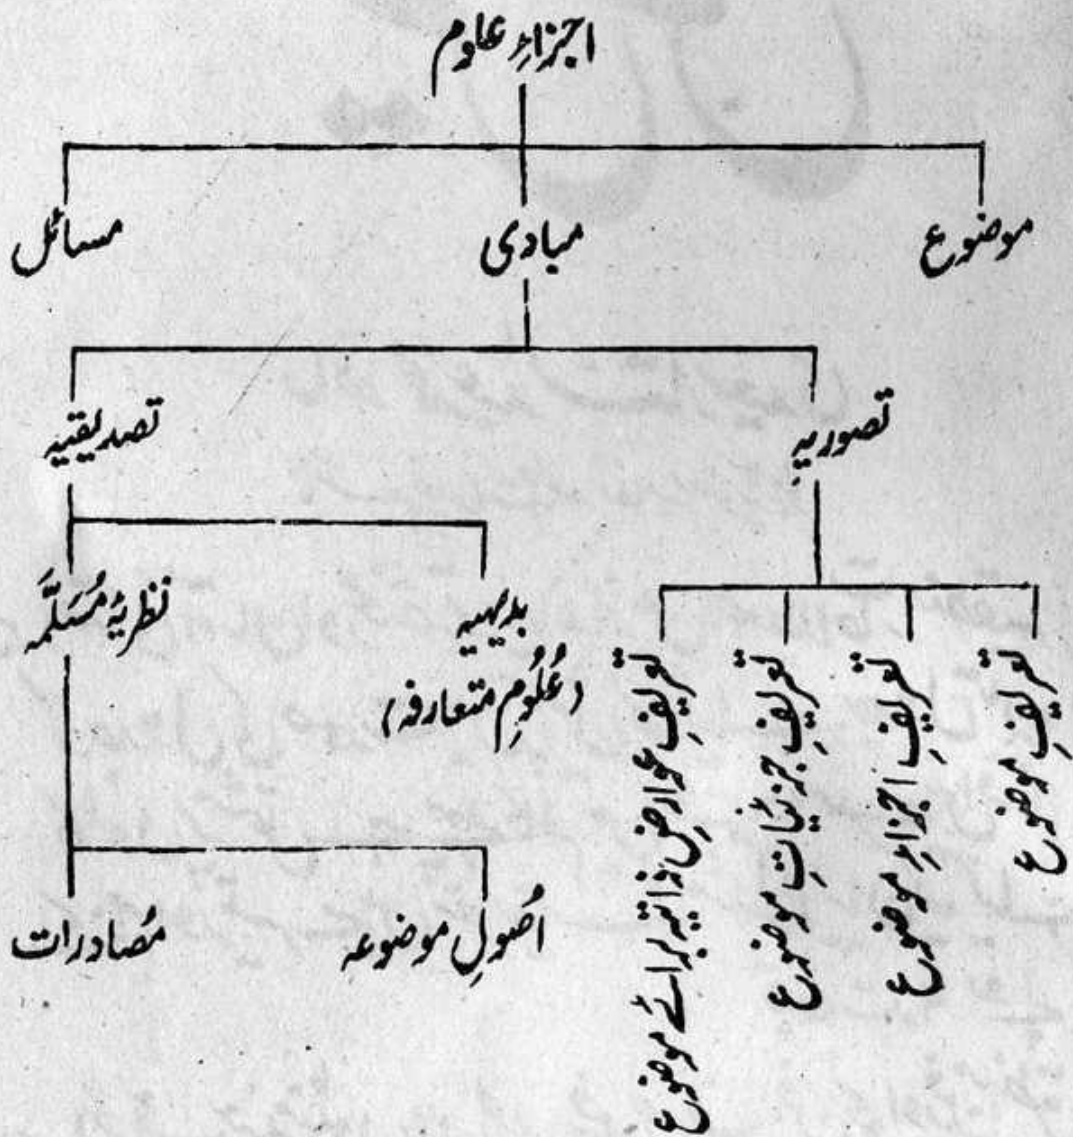 اجزاءِ علوم
موضوع
مبادی
مسائل
تصوریہ
تصدیقیہ
تعریفِ موضوع
تعریفِ اجزاءِ موضوع
تعریفِ جزئیاتِ موضوع
تعریفِ عوارضِ ذاتیہ برائے موضوع
بدیہیہ
(عُلُومِ متعارفہ)
نظریۂ مُسَلَّمہ
اُصُولِ موضوعہ
مُصَادرات